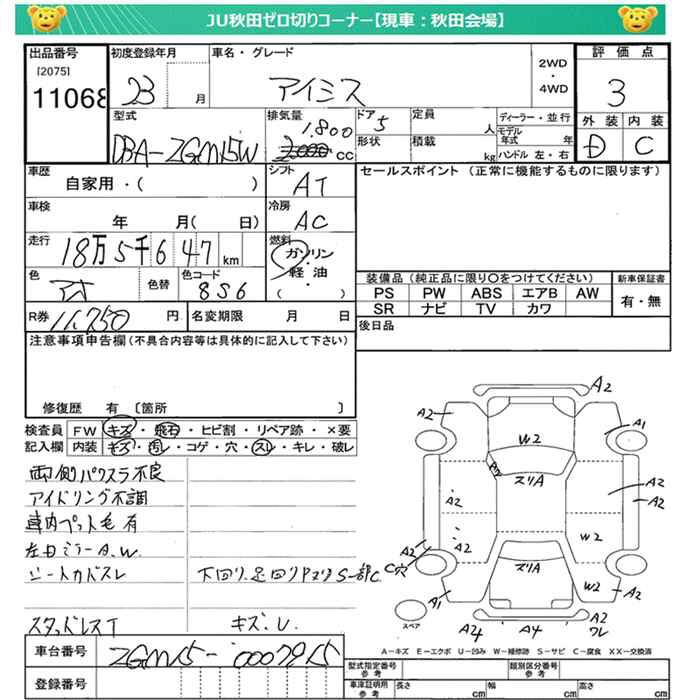 JU秋田ゼロ切りコーナー【現車：秋田会場】
出品番号
[2075]
11068
初度登録年月
23 月
車名・グレード
アイシス
2WD
・
4WD
評価点
3
型式
DBA-ZGM15W
排気量
1.800
cc
ドア
5
形状
定員
人
積載
kg
ディーラー・並行
モデル年式 年
ハンドル 左・右
外装 内装
D C
車歴
自家用・( )
シフト
AT
セールスポイント (正常に機能するものに限ります)
車検
年 月( 日)
冷房
AC
走行
18万5千647km
燃料
ガソリン
軽油
・
( )
色
色替
色コード
8S6
装備品 (純正品に限り〇をつけてください)
新車保証書
PS PW ABS エアB AW
有・無
SR ナビ TV カワ
R券 11,750 円
名変期限 月 日
後日品
注意事項申告欄(不具合内容等は具体的に記入して下さい)
修復歴 有 [箇所 ]
検査員
記入欄
FW キズ・飛石・ヒビ割・リペア跡・×要
内装 キズ・汚レ・コゲ・穴・スレ・キレ・破レ
両側パワスラ不良
アイドリング不調
車内ペット毛有
左ドミラーA.W.
シートカドスレ
下回り.足回りPヌリS一部C
スタッドレスT
キズ.U.
A2
A2
W2
A1
ヌリA
A2
A2
A2
A2
W2
A2
A2
C穴
ヌリA
A1
W2
A2
ワレ
スペア
A24
A4
A−キズ E−エクボ U−凹み W−補修跡 S−サビ C−腐食 XX−交換済
車台番号
ZGM15-0007915
登録番号
型式指定番号
参考
類別区分番号
参考
車庫証明用
参考
長さ cm
幅 cm
高さ cm